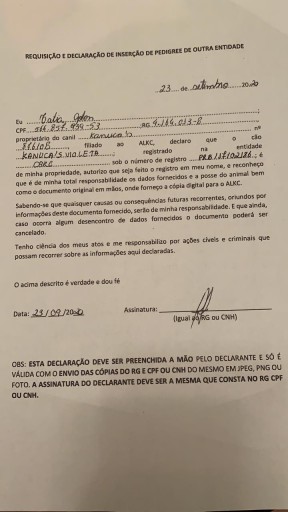 REQUISIÇÃO E DECLARAÇÃO DE INSERÇÃO DE PEDIGREE DE OUTRA ENTIDADE
23 de setembro 2020
Eu
CPF RG
proprietário do canil Kanuca's nº
filiado ao ALKC, declaro que o cão
KANUCA'S VIOLETA registrado na entidade
CBRC sob o número de registro ; é
de minha propriedade, autorizo que seja feito o registro em meu nome, e reconheço
que é de minha total responsabilidade os dados fornecidos e a posse do animal bem
como o documento original em mãos, onde forneço a cópia digital para o ALKC.
Sabendo-se que quaisquer causas ou consequências futuras recorrentes, oriundos por
informações deste documento fornecido, serão de minha responsabilidade. E que ainda,
caso ocorra algum desencontro de dados fornecidos o documento poderá ser
cancelado.
Tenho ciência dos meus atos e me responsabilizo por ações cíveis e criminais que
possam recorrer sobre as informações aqui declaradas.
O acima descrito é verdade e dou fé
Data: 23/09/2020 Assinatura:
(Igual ao RG ou CNH)
OBS: ESTA DECLARAÇÃO DEVE SER PREENCHIDA A MÃO PELO DECLARANTE E SÓ É
VÁLIDA COM O ENVIO DAS CÓPIAS DO RG E CPF OU CNH DO MESMO EM JPEG, PNG OU
FOTO. A ASSINATURA DO DECLARANTE DEVE SER A MESMA QUE CONSTA NO RG CPF
OU CNH.